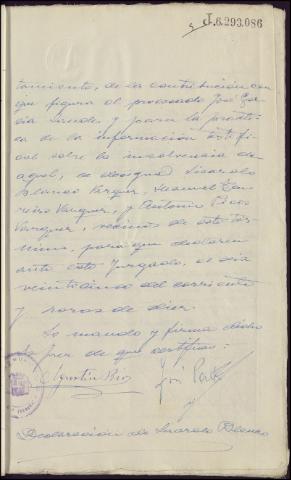 J.6.293.086
tamiento, de la contribución con
que figura el procesado José Gar
cia Landes y para la practi
ca de la información testifi
cal sobre la insolvencia de
aquel, se designa Licarolo
Blanco Vazquez, Manuel
Vazquez, y Antonio
Vazquez, vecinos de este ter
mino, para que declaren
ante este Juzgado, el dia
veinticinco del corriente
y horas de diez.
Lo mando y firma dicho
Sr Juez de que certifico:
Agustin Rio José
Declaración de Blanco